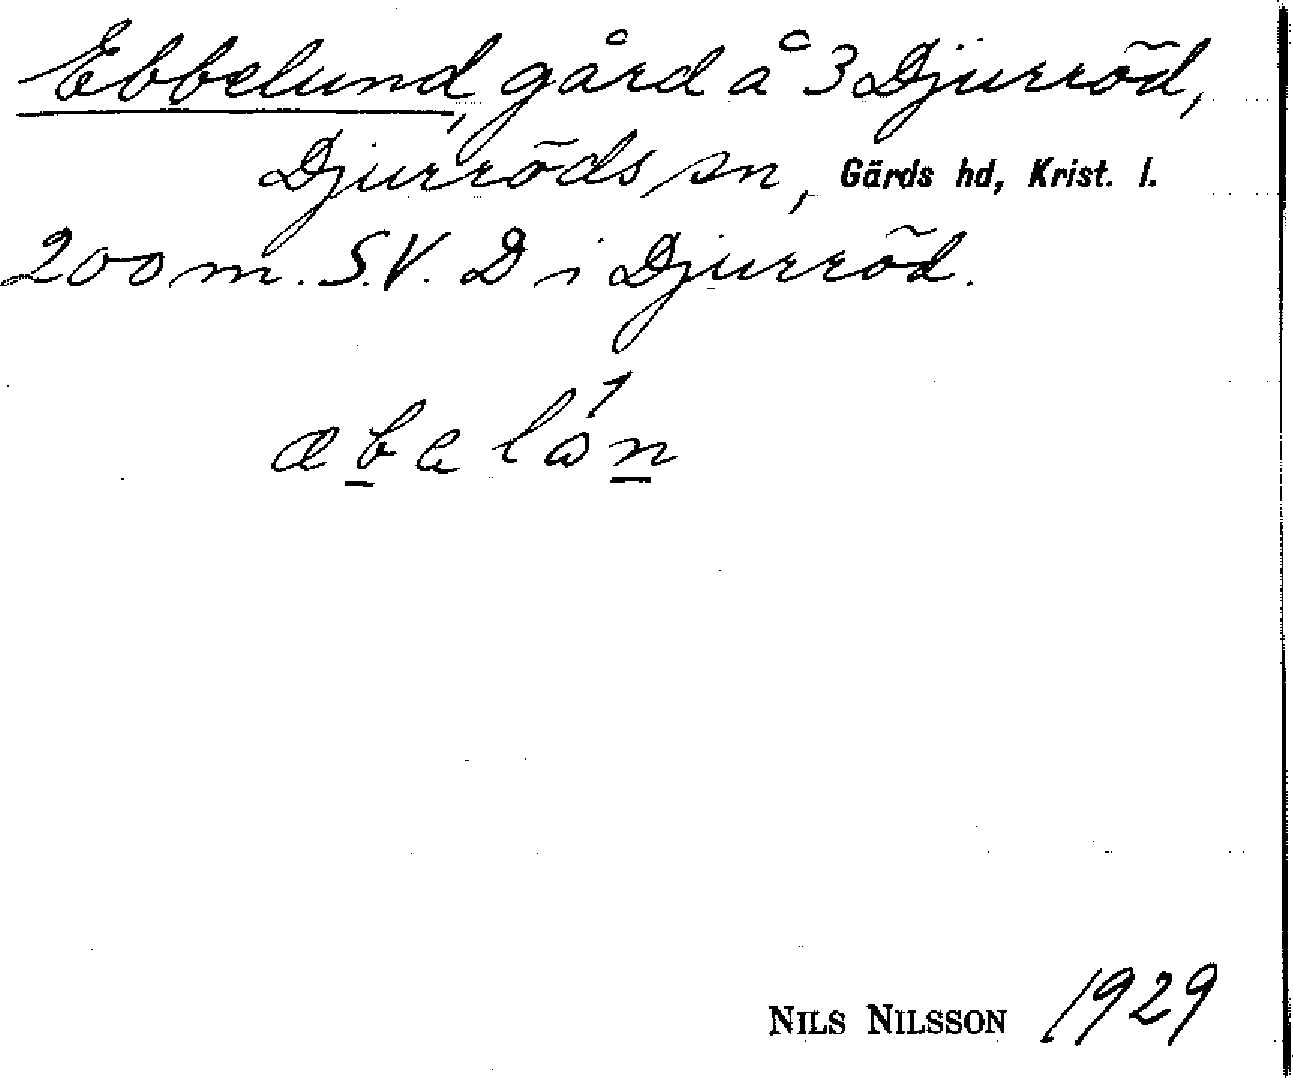 Ebbelund, gård å 3 Djurröd,
Djurröds sn, Gärds hd, Krist. l.
200 m. S.V. D i Djurröd.
NILS NILSSON 1929